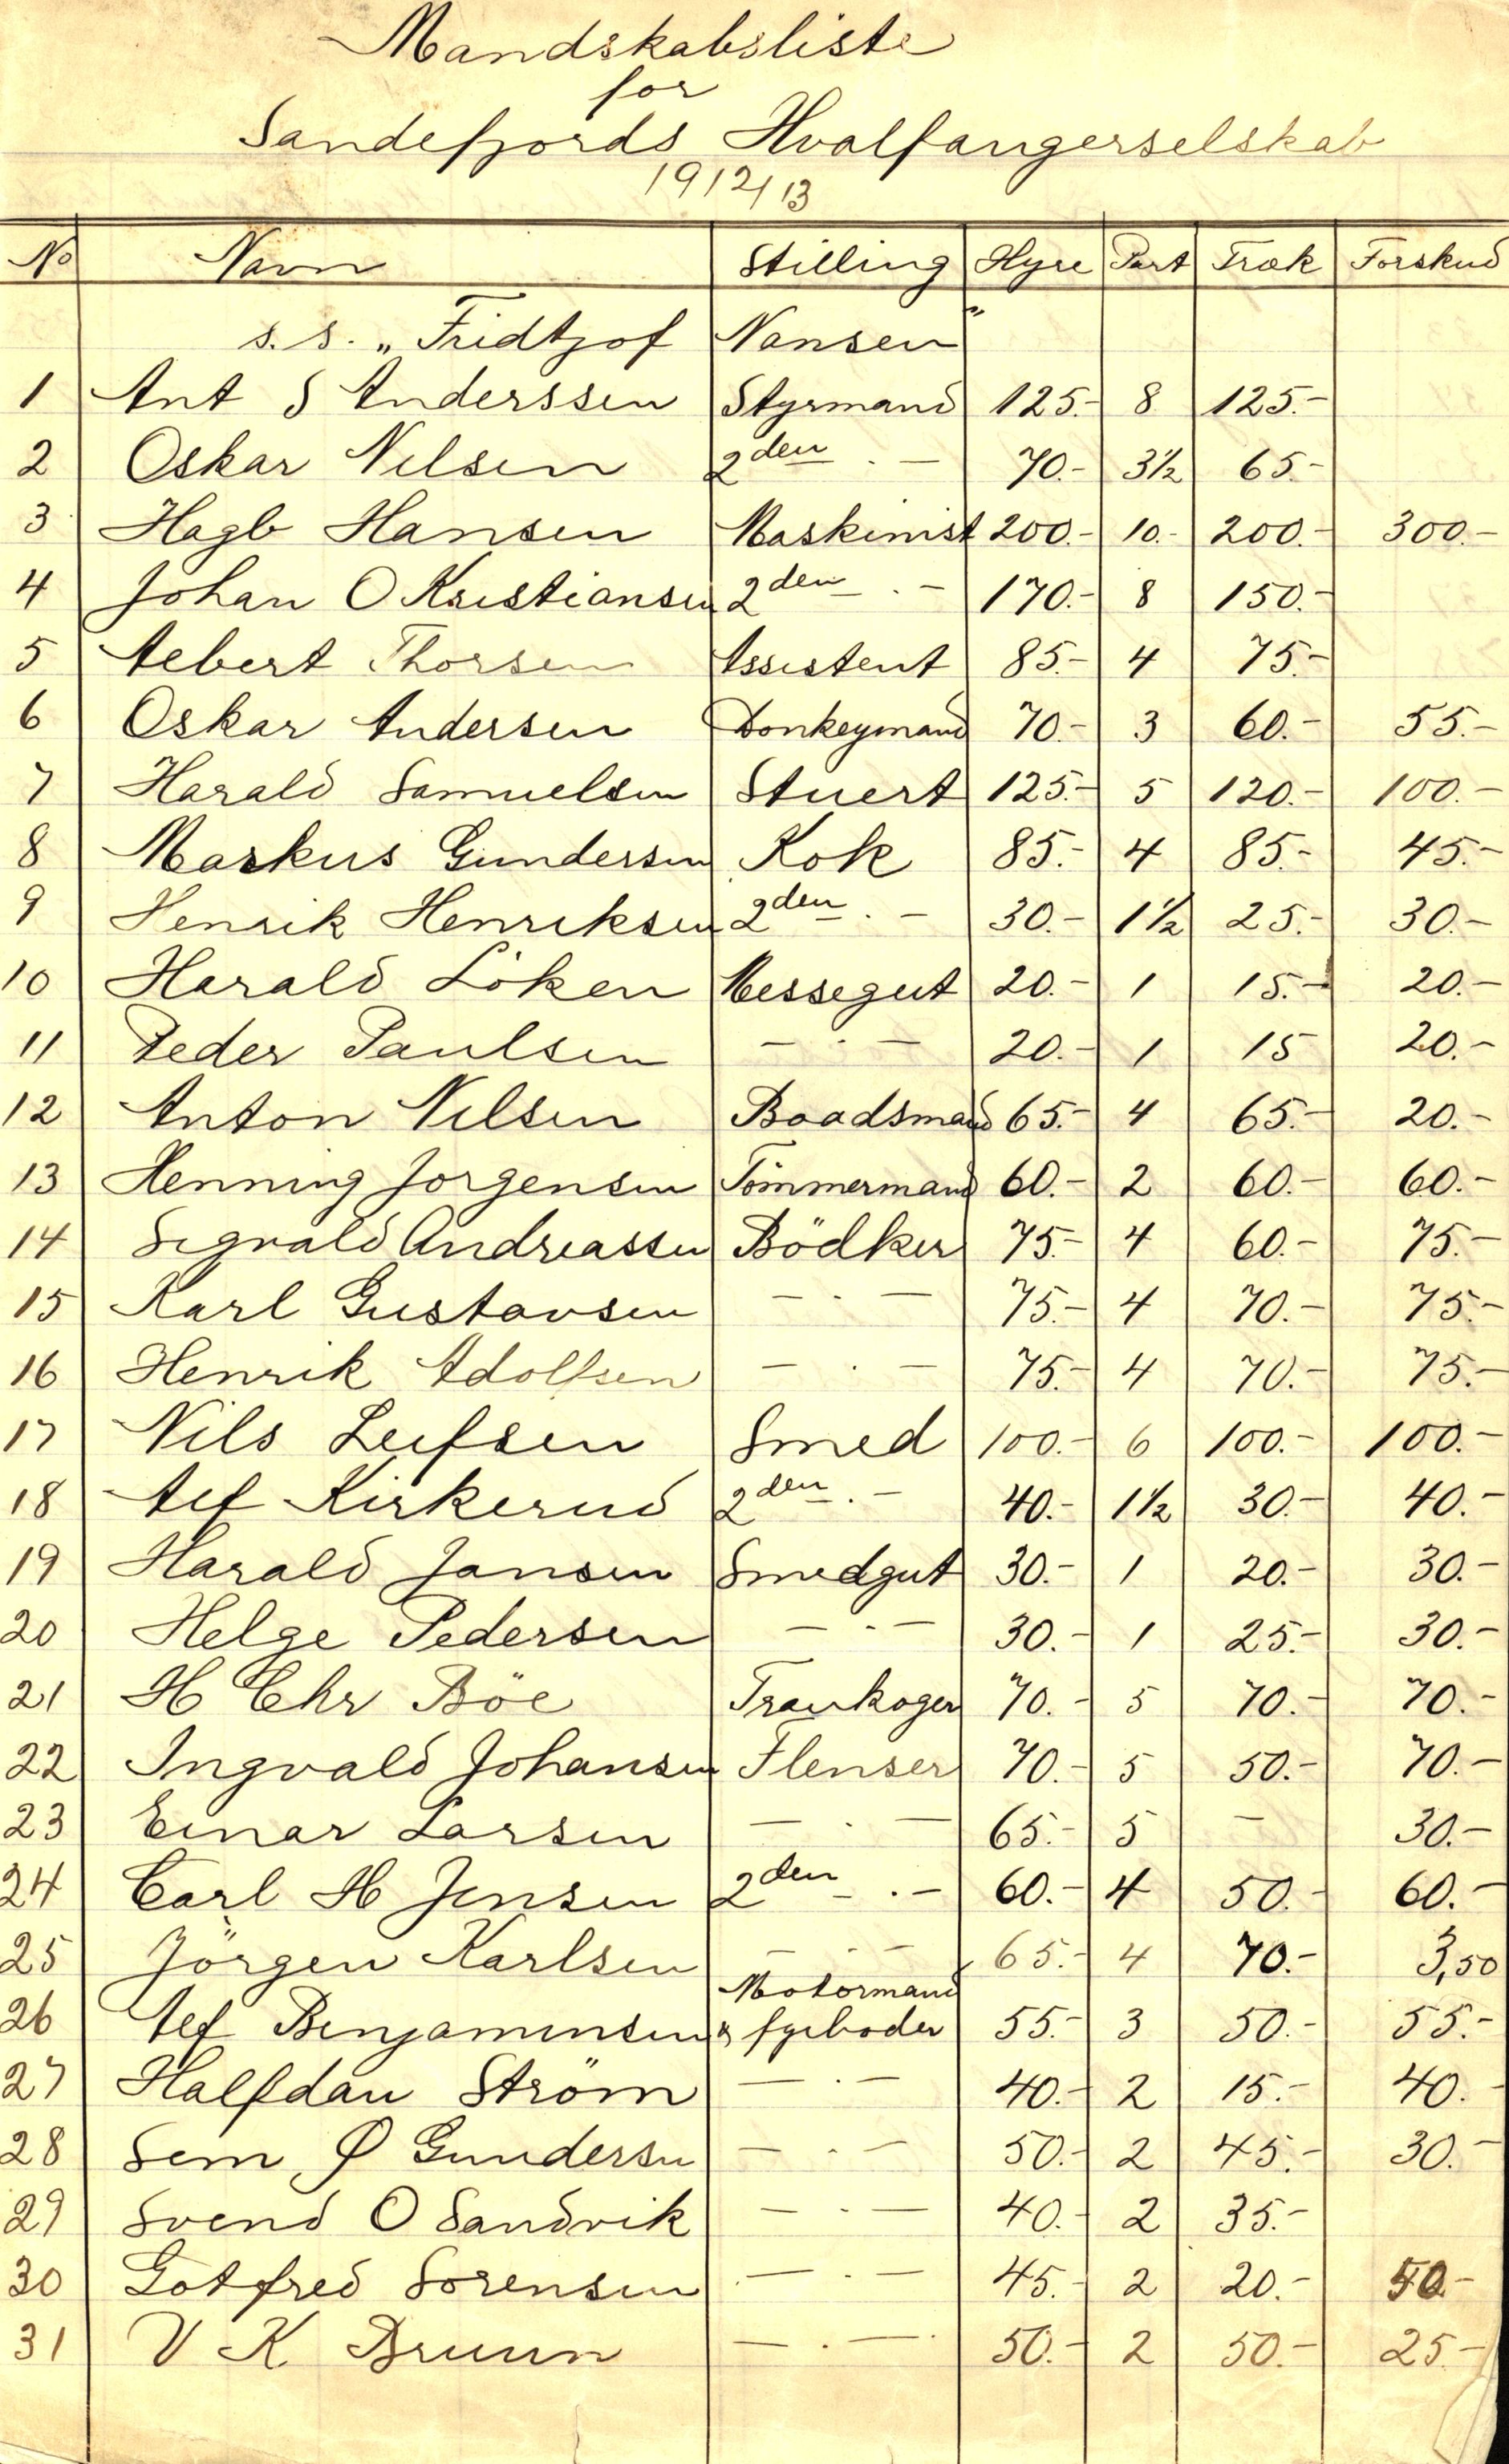 Mandskabsliste
for
Sandefjords Hvalfangerselskab
1912/13
No Navn Stilling Hyre Part Træk Forskud
s.s. „Fridtjof Nansen"
1 Ant S Anderssen Styrmand 125.- 8 125.-
2 Oskar Nilsen 2den . - 70.- 3½ 65.-
3 Hagb Hansen Maskinist 200.- 10.- 200.- 300.-
4 Johan O Kristiansen 2den . - 170.- 8 150.-
5 Albert Thorsen Assistent 85.- 4 75.-
6 Oskar Andersen Donkeymand 70.- 3 60.- 55.-
7 Harald Samuelsen Stuert 125.- 5 120.- 100.-
8 Markus Gundersen Kok 85.- 4 85.- 45.-
9 Henrik Henriksen 2den . - 30.- 1½ 25.- 30.-
10 Harald Löken Messegut 20.- 1 15.- 20.-
11 Peder Paulsen - . - 20.- 1 15 20.-
12 Anton Nilsen Baadsmand 65.- 4 65.- 20.-
13 Henning Jorgensen Tömmermand 60.- 2 60.- 60.-
14 Sigvald Andreassen Bödker 75.- 4 60.- 75.-
15 Karl Gustavsen - . - 75.- 4 70.- 75.-
16 Henrik Adolfsen - . - 75.- 4 70.- 75.-
17 Nils Leifsen Smed 100.- 6 100.- 100.-
18 Alf Kirkerud 2den . - 40.- 1½ 30.- 40.-
19 Harald Jansen Smedgut 30.- 1 20.- 30.-
20 Helge Pedersen - . - 30.- 1 25.- 30.-
21 H Chr Böe Trankoger 70.- 5 70.- 70.-
22 Ingvald Johansen Flenser 70.- 5 50.- 70.-
23 Einar Larsen - . - 65.- 5 - 30.-
24 Carl H Jensen 2den . - 60.- 4 50.- 60.-
25 Jörgen Karlsen - . - 65.- 4 70.- 3,50
Motormand
26 Alf Benjaminsen & fyrböder 55.- 3 50.- 55.-
27 Halfdan Ström - . - 40.- 2 15.- 40.-
28 Sem Ø Gundersen - . - 50.- 2 45.- 30.-
29 Svend O Sandvik - . - 40.- 2 35.-
30 Gotfred Sorensen - . - 45.- 2 20.- 50.-
31 V K Bruun - . - 50.- 2 50.- 25.-